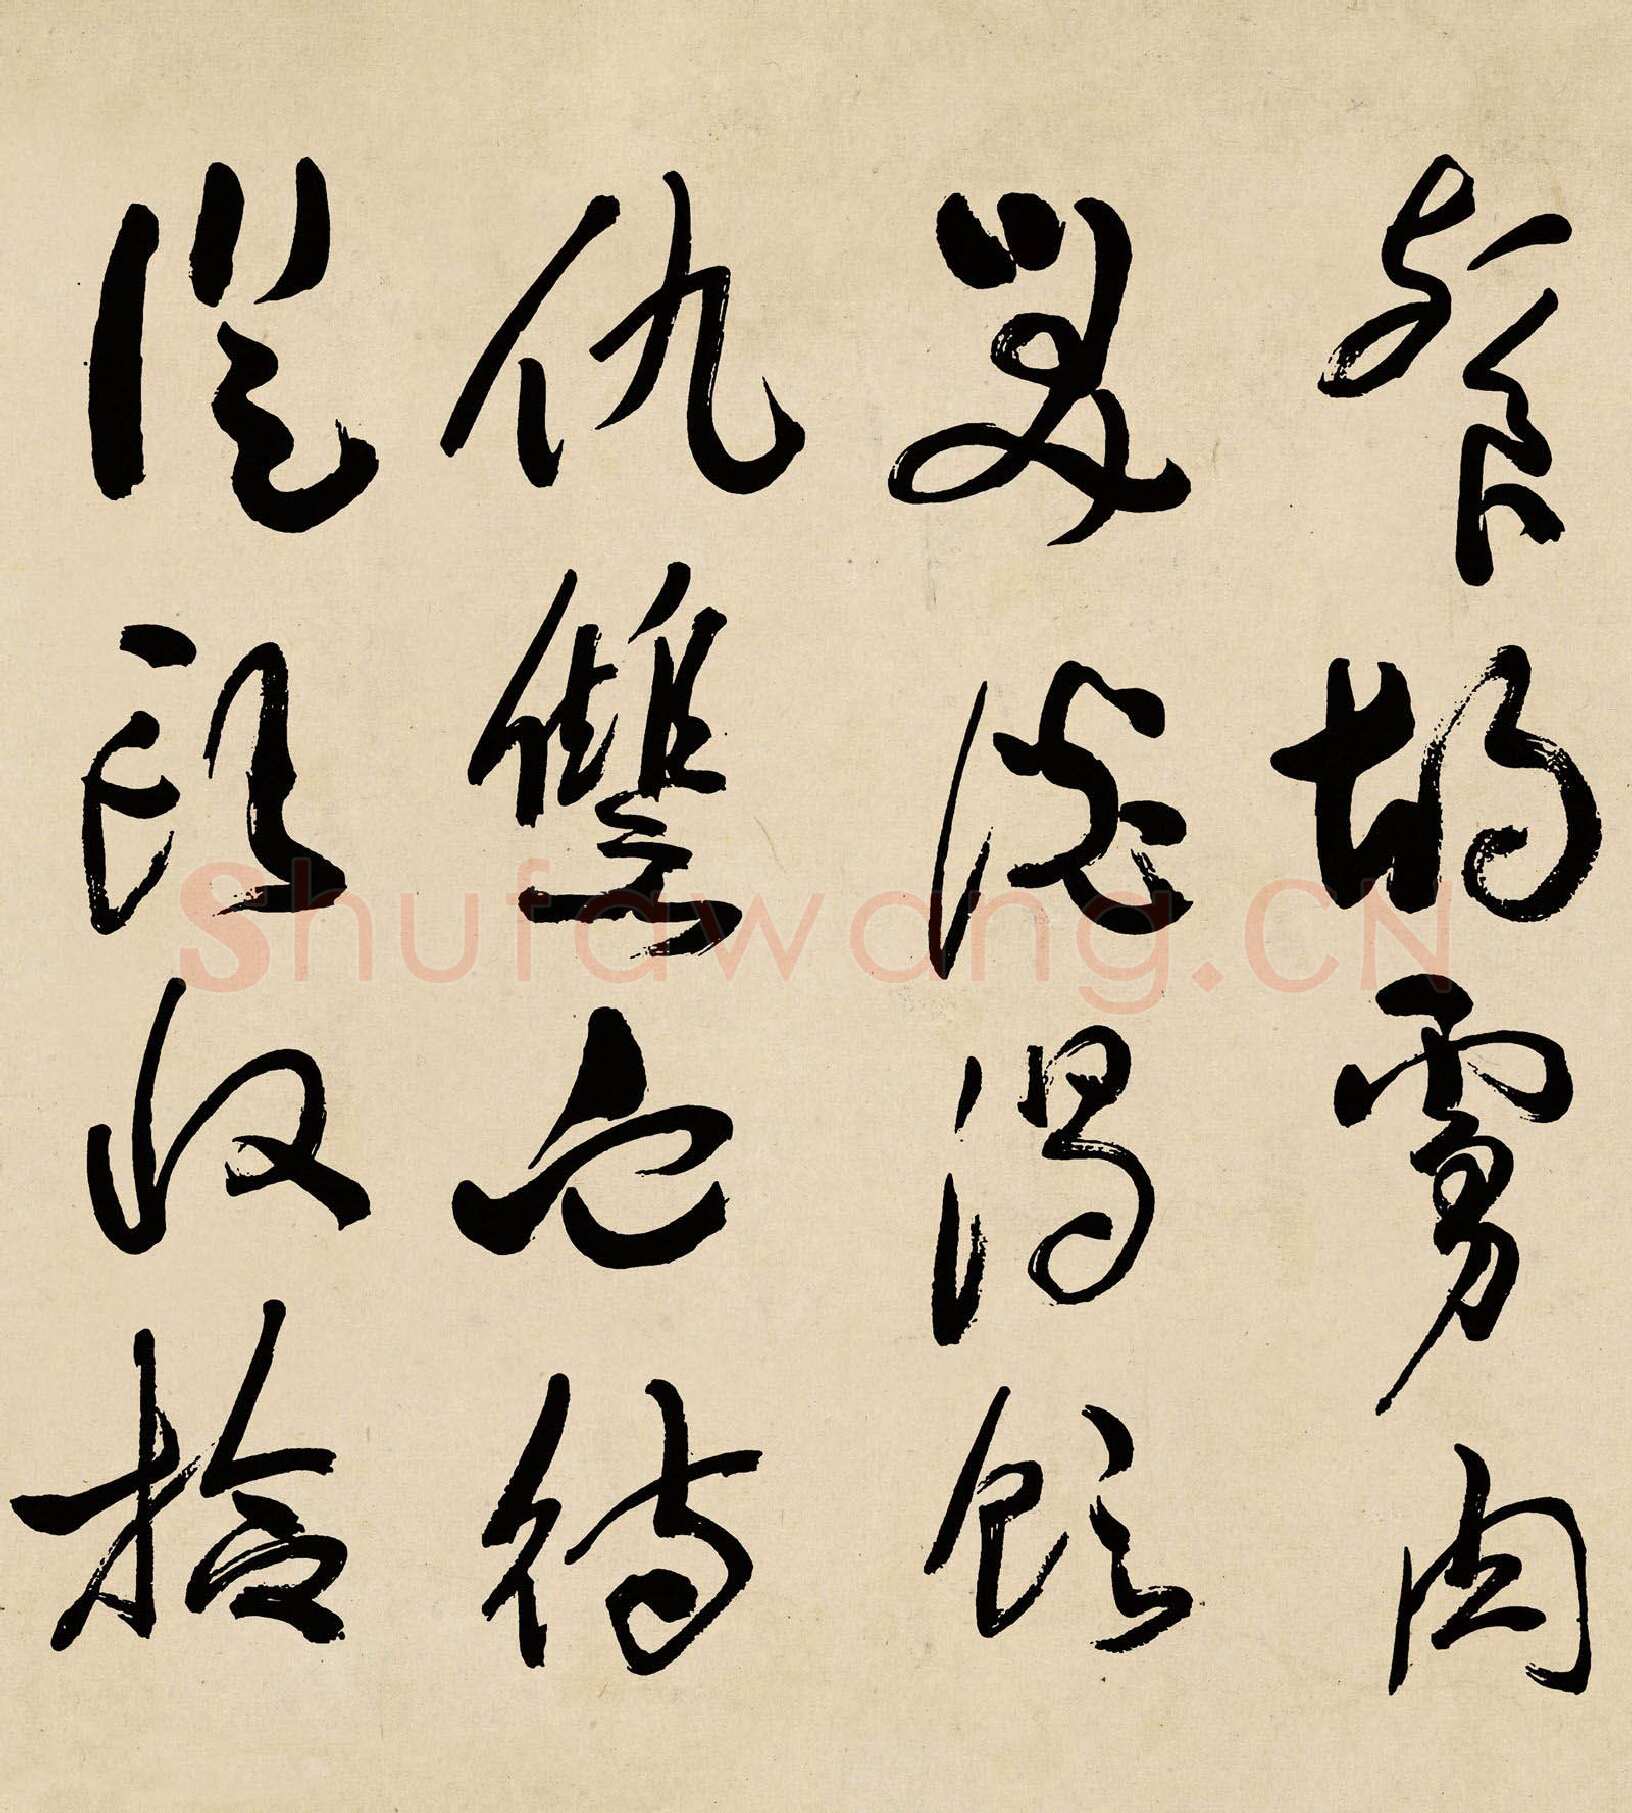 餐胡虜肉
笑談渴飲
仇讐血待
從頭收撿
Shufawang.CN